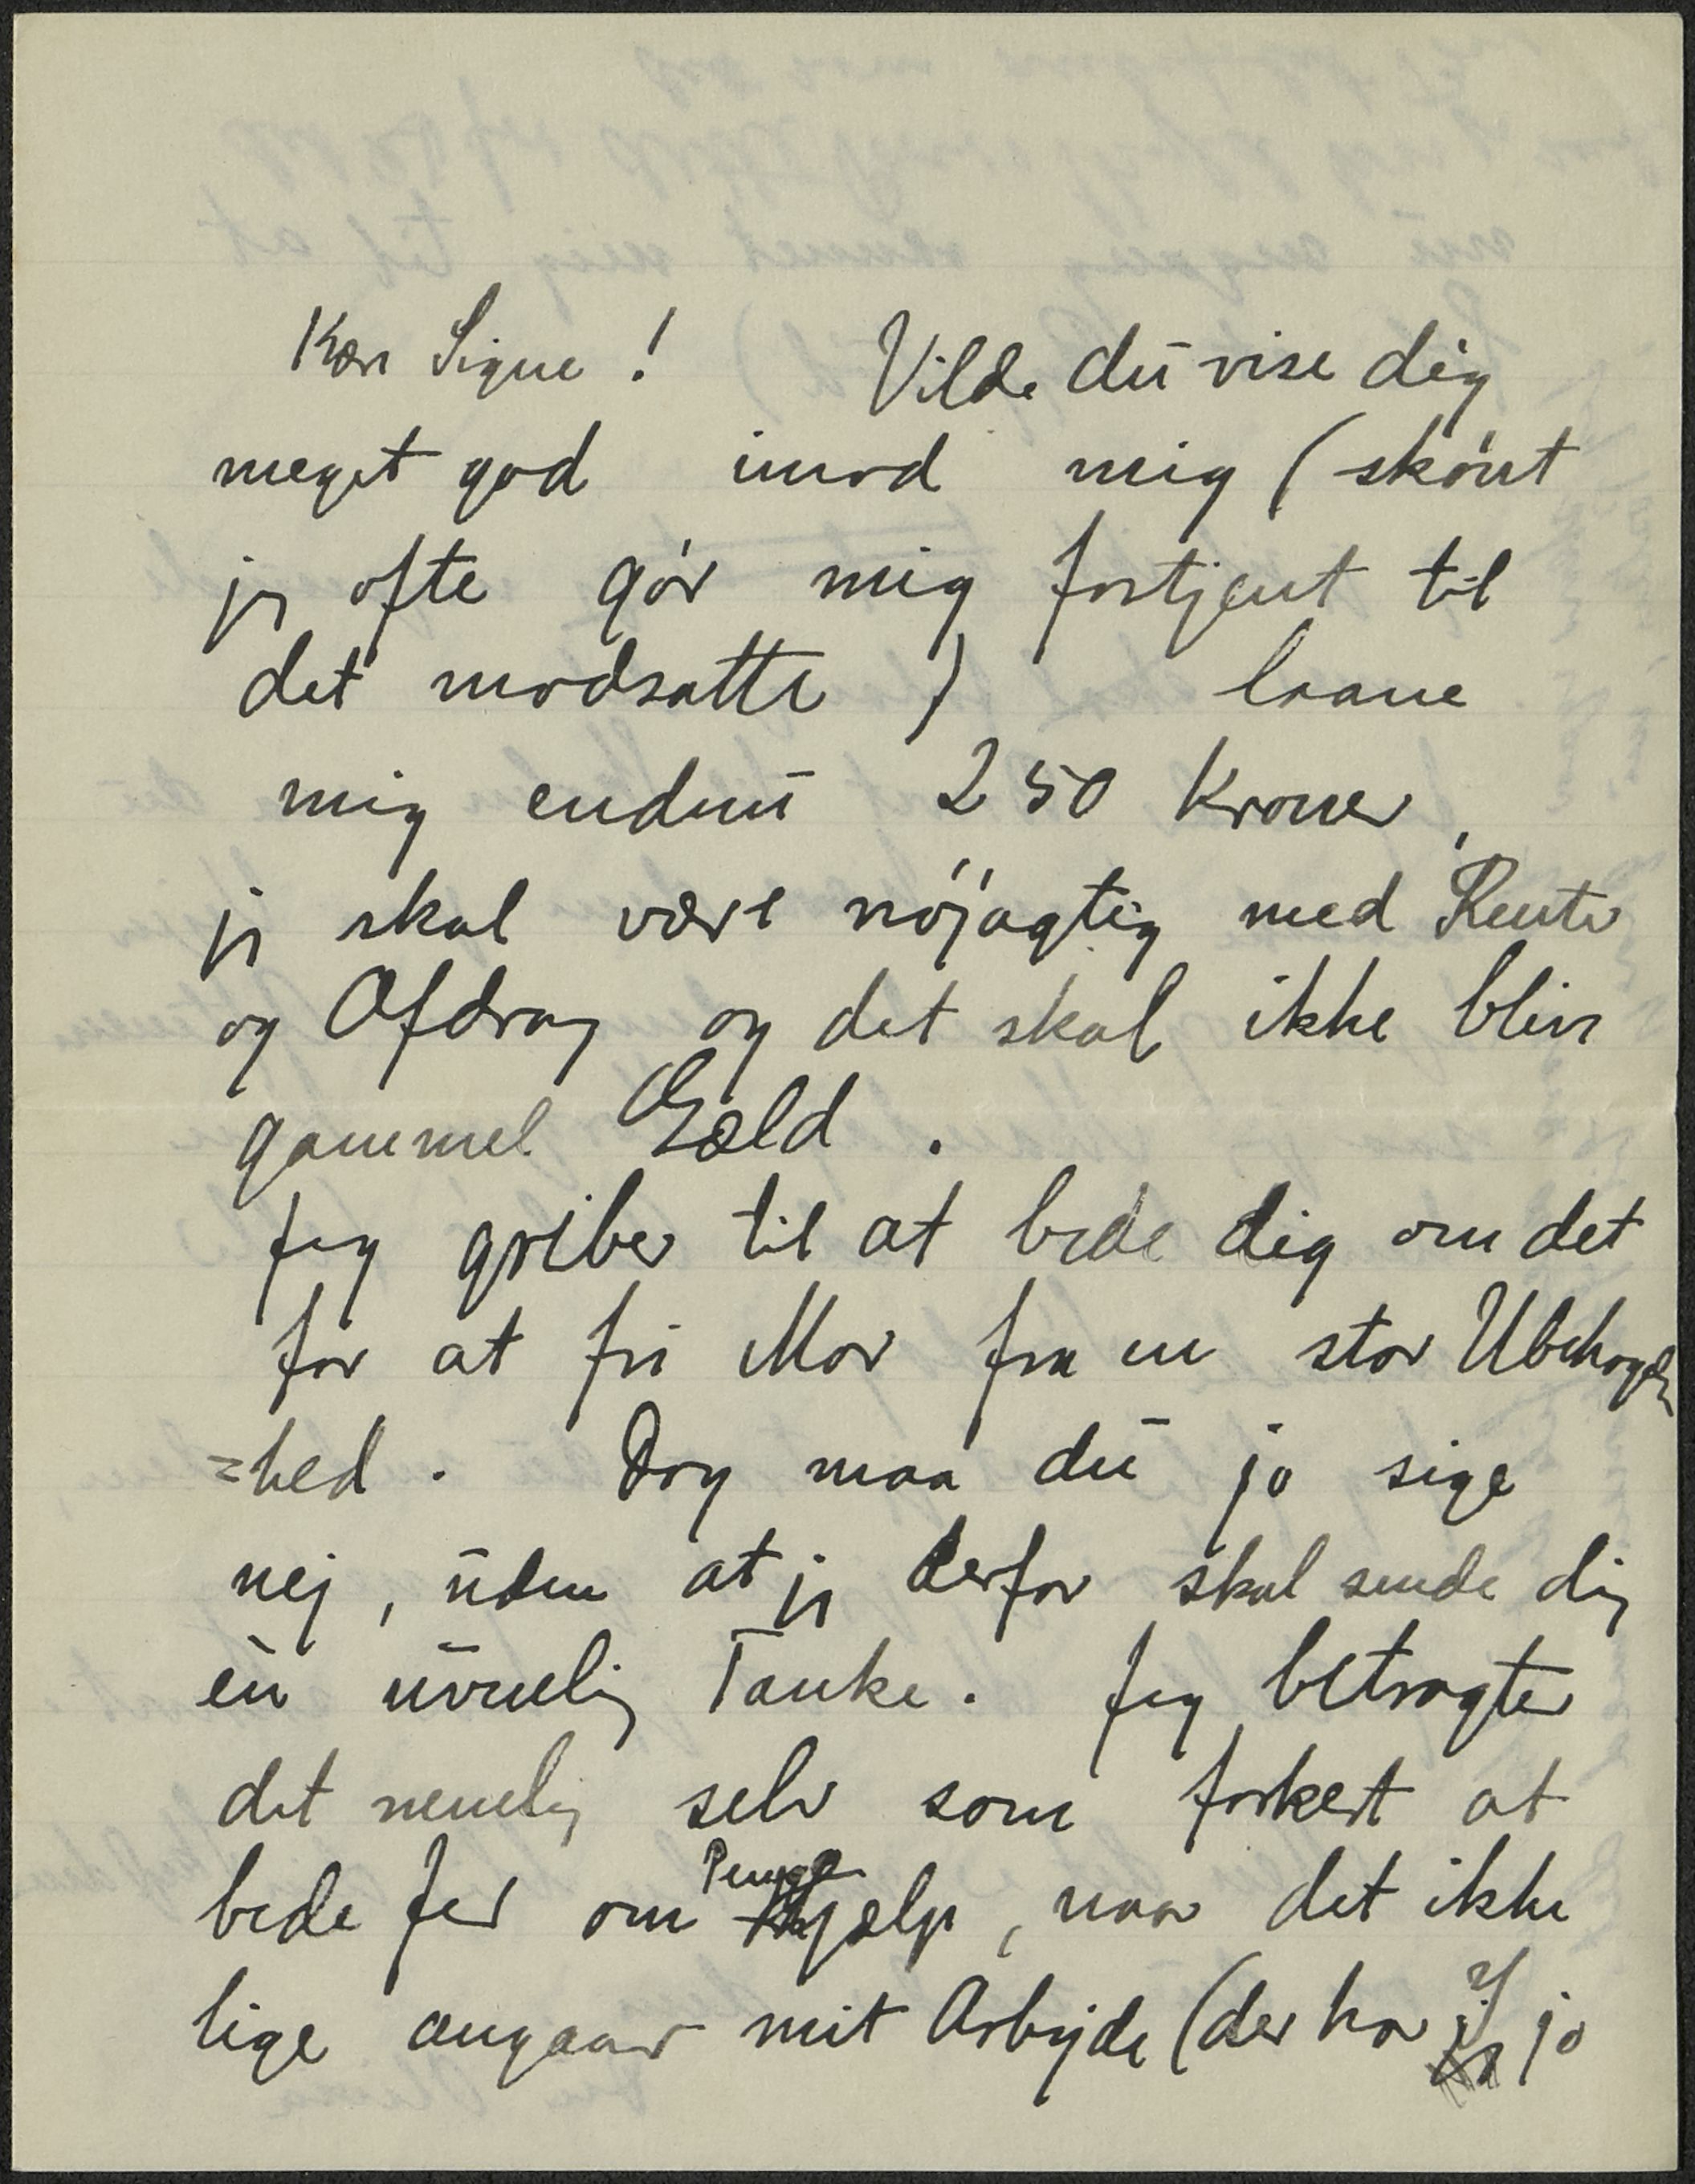 Kære Signe! Vilde du vise dig
meget god imod mig (skönt
jeg ofte gör mig fortjent til
det modsatte) laane
mig endnu 250 Kroner,
jeg skal være nöjagtig med Rente
og Afdrag og det skal ikke blive
gammel Gæld.
Jeg griber til at bede dig om det
for at fri Mor fra en stor Ubehagelig
=hed. Dog maa du jo sige
nej, uden at jeg derfor skal sende dig
en uvenlig Tanke. Jeg betragter
det nemlig selv som forkert at
bede Jer om Penge
hjælp, naar det ikke
lige angaar mit Arbejde (der har I jo